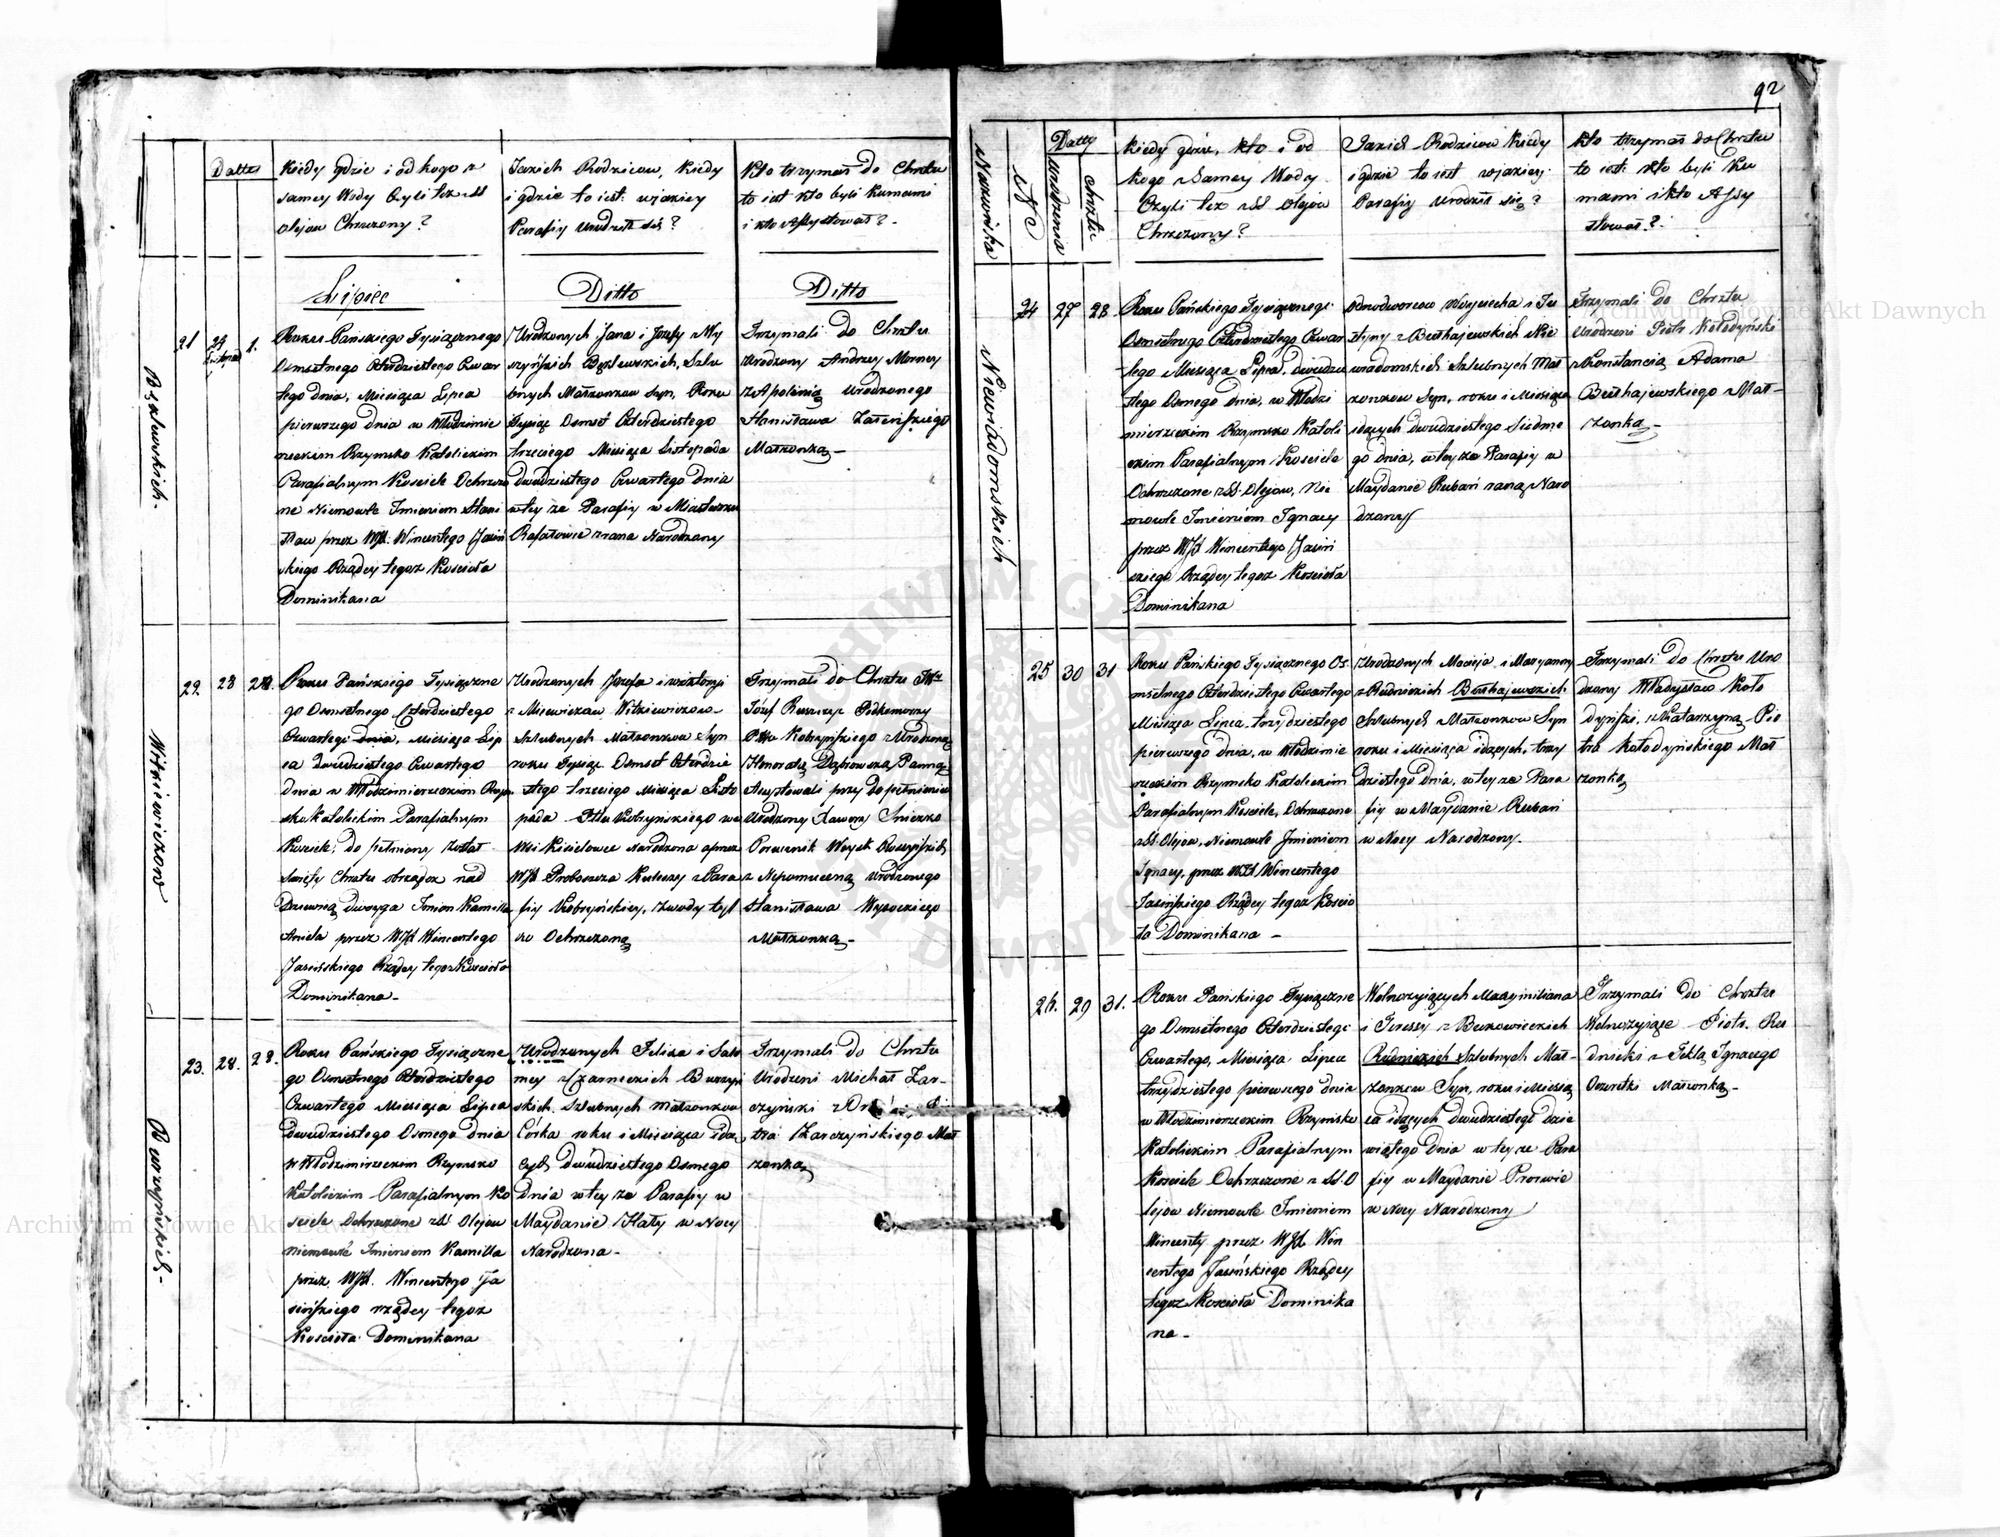 92
Datta
Kiedy gdzie i od kogo z
samey Wody Czyli też z SS
olejow Chrzczony?
Jakich Rodzicow, Kiedy
i gdzie to iest: w jakiey
Parafiy Urodził się?
Kto trzymał do Chrztu
to iest kto byli Kumami
i kto Assystował? -
Lipiec
Ditto
Ditto
Bęklewskich.
21
29
1.
Roku Pańskiego Tysiącznego
Osmsetnego Czterdziestego Czwar
tego dnia, Miesiąca Lipca
pierwszego dnia w Włodzimie
rzeckim Rzymsko Katolickim
Parafialnym Kosciele Ochrzczo
ne Niemowle Imieniem Stani
sław przez WJX. Wincentego Jasiń
skiego Rządcy tegoż Kościoła
Dominikana
Urodzonych Jana i Jozefy z My
szyńskich Bęklewskich, Szlu
bnych Małżonkow Syn, Roku
Tysiąc Osmset Czterdziestego
trzeciego Miesiąca Listopada
Dwudziestego Czwartego Dnia
w tey że Parafiy w Miasteczku
Rafałowie z rana Narodzony
Trzymali do Chrztu
Urodzony Andrzey Morawy
z Apolonią Urodzonego
Stanisława Zaleńskiego
Małżonką -
Witkiewiczow
22.
23
24.
Roku Pańskiego Tysiączne
go Osmsetnego Czterdziestego
Czwartego dnia, Miesiąca Lip
ca dwudziestego Czwartego
dnia w Włodzimierzeckim Rzym
sko Katolickim Parafialnym
Kosciele, do pełniony został
Swięty Chrztu obrządek nad
Dziewną dwoyga Imion Kamilla
Aniela przez WJX Wincentego
Jasińskiego Rządcy tegoż Kościoła
Dominikana -
Urodzonych Jozefa i Wiktoryi
z Mickiewiczow Witkiewiczow
Szlubnych Małżonkow Syn
roku Tysiąc Osmset Czterdzie
stego trzeciego Miesiąca Listo
pada Pttu Kobryńskiego we
Wsi Kisielowce Narodzona a przez
WJX Proboszcza Kuleszy z Para
fiy Kobryńskiey, z wody tyl
ko Ochrzczona
Trzymali do Chrztu JW.
Józef Ruszczyc Podkomorzy
Pttu Kobryńskiego z Urodzoną
Honoratą Dąbrowską Panną
Assystowali przy dopełnieniu
Urodzony Xawery Snieżko
Porucznik Woysk Rossyiskich
z Nepomuceną Urodzonego
Stanisława Wysockiego
Małżonką -
Burzyńskich -
23.
28.
28.
Roku Pańskiego Tysiączne
go Osmsetnego Czterdziestego
Czwartego Miesiąca Lipca
dwudziestego Osmego dnia
w Włodzimirzeckim Rzymsko
Katolickim Parafialnym Ko
sciele Ochrzczone z SS Olejow
niemowlę Imieniem Kamilla
przez WJX. Wincentego Ja
sińskiego rządcy tegoż
Kościoła Dominikana
Urodzonych Felixa i Salo
mey z Czarneckich Burzyń
skich Szlubnych Małżonkow
Córka roku i Miesiąca idą
cych dwudziestego Osmego
Dnia w tey że Parafiy w
Maydanie Haty w Nocy
Narodzona -
Trzymali do Chrztu
Urodzeni Michał Zar-
czyński z
tra Zarczyńskiego Mał
żonką
Nazwiska
Nr
Datty
Urodzenia
Chrztu
Kiedy gdzie, kto i od
kogo z Samey Wody
Czyli też z SS Olejow
Chrzczony?
Jakich Rodzicow Kiedy
i gdzie to iest w jakiey
Parafiy Urodził się?
Kto trzymał do Chrztu
to iest kto byli Ku
mami i kto Assy
stował?
Niewiadomskich
24
27
28
Roku Pańskiego Tysiącznego
Osmsetnego Czterdziestego Czwar
tego Miesiąca Lipca, dwudzie
stego Osmego dnia, w Włodzi
mierzeckim Rzymsko Katoli
ckim Parafialnym Kosciele
Ochrzczone z SS. Olejow, Nie
mowle Imieniem Ignacy
przez WJX Wincentego Jasiń
skiego Rządcy tegoż Kościoła
Dominikana
Odnodworcow Woyciecha i Ju
styny z Bułhajewskich Nie
wiadomskich Szlubnych Mał
żonkow Syn, roku i Miesiąca
idących dwudziestego Siodme
go dnia, w tey że Parafiy w
Maydanie Rubań z rana Naro
dzony
Trzymali do Chrztu
Urodzeni Piotr Kołodyński
z Konstancią Adama
Bułhajewskiego Mał-
żonką -
25
30
31
Roku Pańskiego Tysiącznego Os
msetnego Czterdziestego Czwartego
Miesiąca Lipca trzydziestego
pierwszego dnia, w Włodzimie
rzeckim Rzymsko Katolickim
Parafialnym Kosciele, Ochrzczone
z SS. Olejow, Niemowle Imieniem
Ignacy, przez WJX Wincentego
Jasińskiego Rządcy tegoż Kościo
ła Dominikana -
Urodzonych Macieja i Maryanny
z Rudnickich Bułhajewskich
Szlubnych Małżonkow Syn
roku i Miesiąca idących, trzy
dziestego dnia, w tey że Para
fiy w Maydanie Rubań
w Nocy Narodzony.
Trzymali do Chrztu Uro
dzony Władysław Koło
dyński, z Katarzyną Pio
tra Kołodyńskiego Mał
żonką
26.
29
31.
Roku Pańskiego Tysiączne
go Osmsetnego Czterdziestego
Czwartego, Miesiąca Lipca
trzydziestego pierwszego dnia
w Włodzimierzeckim Rzymsko
Katolickim Parafialnym
Kosciele Ochrzczone z SS. O
lejow Niemowle Imieniem
Wincenty przez WJX Win
centego Jasińskiego Rządcy
tegoż Kościoła Dominika
na -
Wolnożyiących Maxymiliana
i Teressy z Berkowieckich
Rudnickich Szlubnych Mał-
żonkow Syn, roku i Miesią
ca idących dwudziestego dzie
wiątego Dnia w tey że Para
fiy w Maydanie Prorwie
w Nocy Narodzony
Trzymali do Chrztu
Wolnożyiące Piotr Ru
dnicki z Teklą Ignacego
Małżonką -
Archiwum Główne Akt Dawnych
Archiwum Główne Akt Dawnych